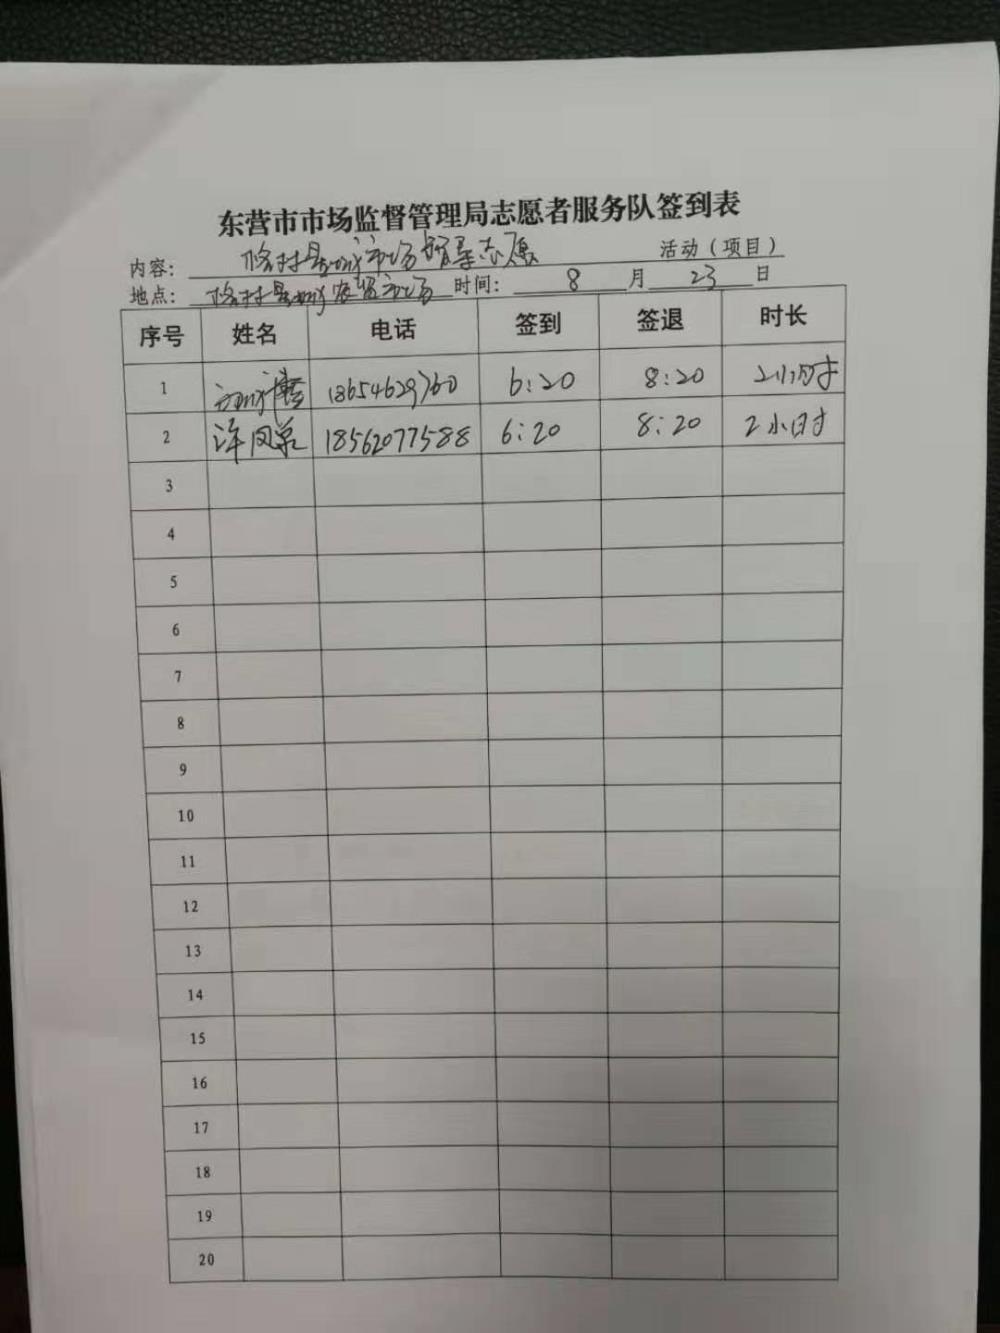 东营市市场监督管理局志愿者服务队签到表
内容：市场督导志愿 活动（项目）
地点：农贸市场 时间：8月23日
序号 姓名 电话 签到 签退 时长
1 18654629760 6:20 8:20 2小时
2 许凤 18562077588 6:20 8:20 2小时
3
4
5
6
7
8
9
10
11
12
13
14
15
16
17
18
19
20